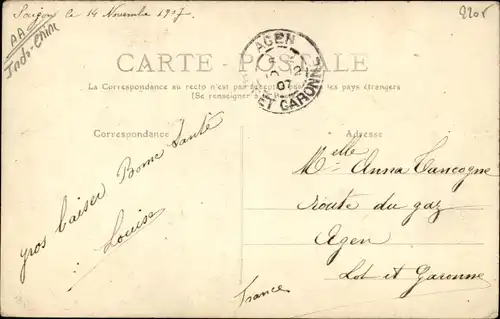 Saigon le 14 Novembre 1907.
AA
Indo-Chine
2205
CARTE POSTALE
La Correspondance au recto n'est pas acceptée par tous les pays étrangers
(Se renseigner à
AGEN
12
07
LOT ET GARONNE
Correspondance
Adresse
gros baiser Bonne Santé
Louise
Melle Anna Cancogne
route du gaz
Agen
Lot et Garonne
France